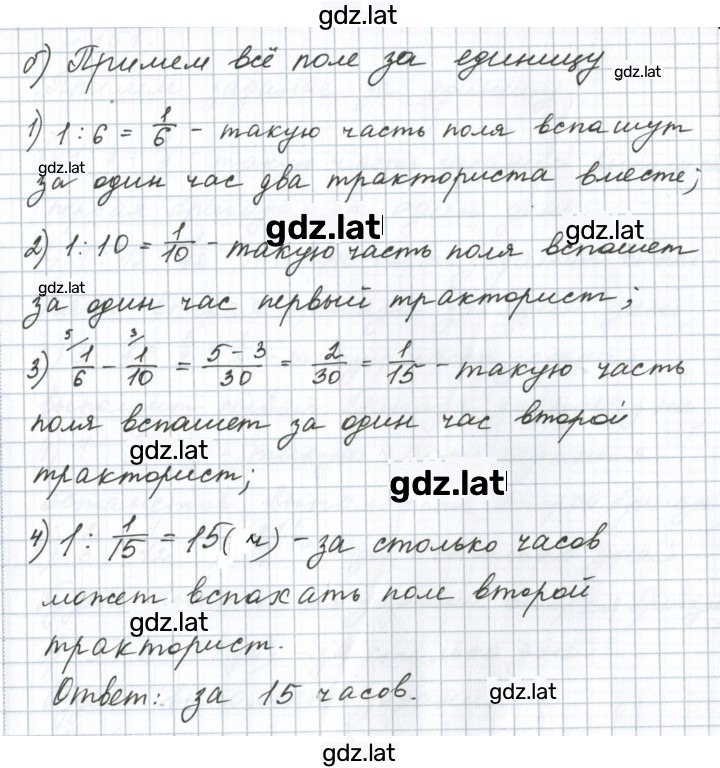 gdz.lat
б) Примем всё поле за единицу gdz.lat
1) 1 : 6 = 1/6 - такую часть поля вспашут
gdz.lat
за один час два тракториста вместе;
gdz.lat gdz.lat
2) 1 : 10 = 1/10 - такую часть поля вспашет
gdz.lat
за один час первый тракторист;
3) 5/ 1/6 - 3/ 1/10 = (5 - 3)/30 = 2/30 = 1/15 - такую часть
поля вспашет за один час второй
gdz.lat
тракторист; gdz.lat
4) 1 : 1/15 = 15 (ч) - за столько часов
может вспахать поле второй
gdz.lat
тракторист.
Ответ: за 15 часов. gdz.lat
gdz.lat